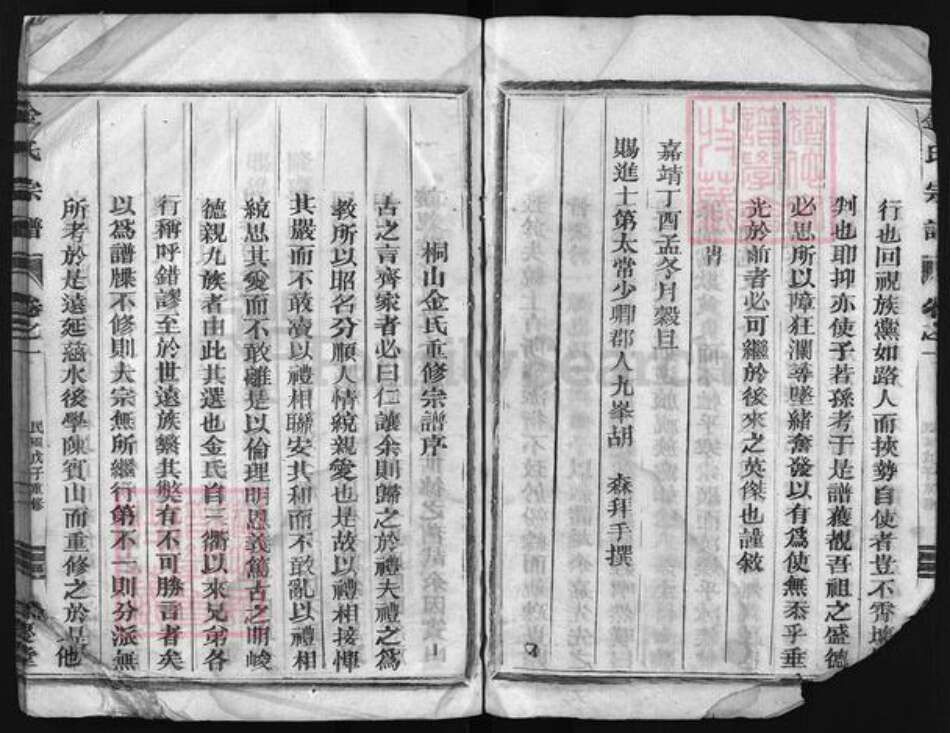 行也回視族黨如路人而挾勢自使者豈不霄壤
判也耶抑亦使子若孫考于是譜獲覩吾祖之盛德
必思所以障狂瀾尋墜緒奮發以有為使無忝乎垂
光於前者必可繼於後來之英傑也謹敘
旹
嘉靖丁酉孟冬月穀旦
賜進士第太常少卿郡人九峯胡 森拜手撰
桐山金氏重修宗譜序
古之言齊家者必曰仁讓余則歸之於禮夫禮之為
教所以昭名分順人情統親愛也是故以禮相接憚
其嚴而不敢凟以禮相聯安其和而不敢亂以禮相
統思其愛而不敢離是以倫理明恩義篤古之明峻
德親九族者由此其選也金氏自三衢以來兄弟各
行稱呼錯謬至於世遠族繁其獘有不可勝言者矣
以為譜牒不修則大宗無所繼行第不一則分派無
所考於是遠延慈水後學陳賓山而重修之於是他
金氏宗譜
卷之一
民國戊子重修